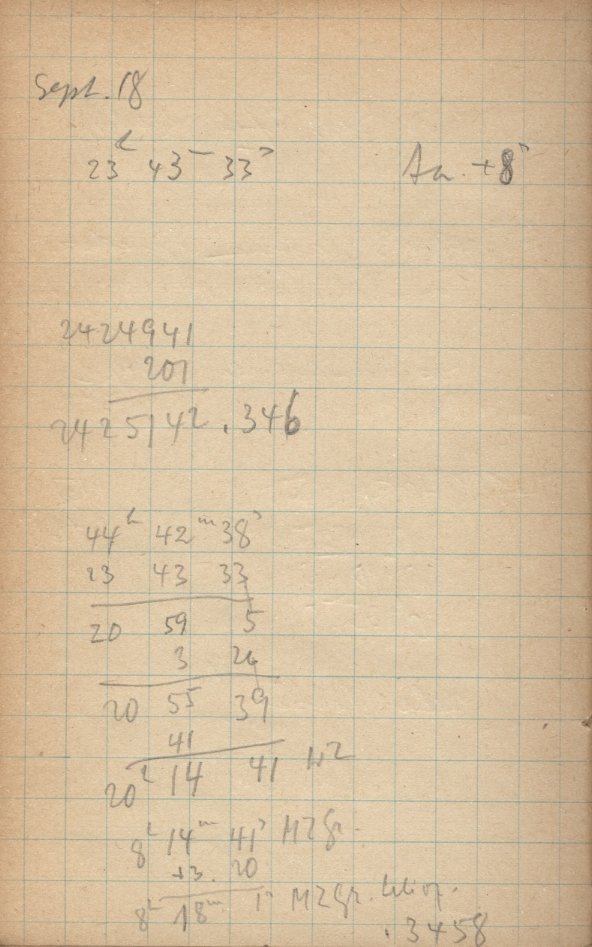 Sept. 18
23h 43m 33s +8s
2424941
201
2425142 .346
44h 42m 38s
23 43 33
20 59 5
3 26
20 55 39
41
20h 14 41
8h 14m 41s MZGr.
+3. 20
8h 18m 1s MZGr.
.3458